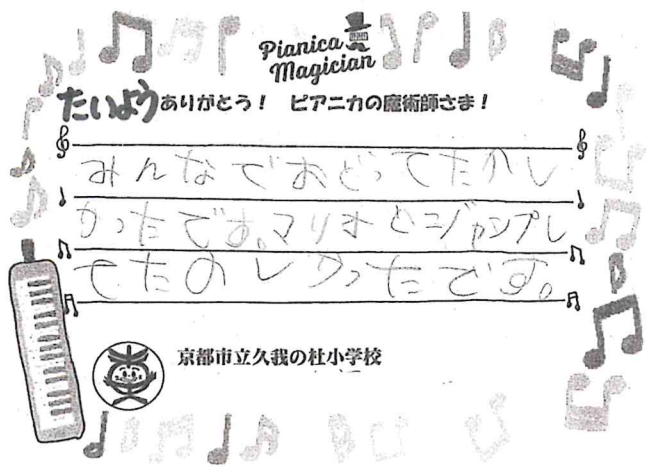 Pianica
Magician
たいようありがとう! ピアニカの魔術師さま!
みんなでおどってたのし
かったです。マリオとジャンプし
てたのしかったです。
京都市立久我の杜小学校